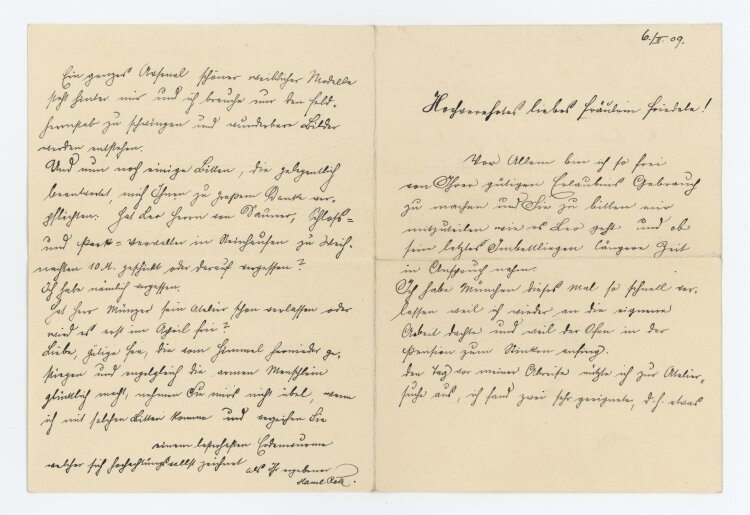 6./II. 09.
Hochverehrtes liebes Fräulein Friedele!
Vor Allem bin ich so frei
von Ihrer gütigen Erlaubnis Gebrauch
zu machen und Sie zu bitten mir
mitzuteilen wie es Leo geht und ob
sein letztes Imbettliegen längere Zeit
in Anspruch nahm.
Ich habe München dieses Mal so schnell ver-
lassen weil ich wieder an die eigene
Arbeit dachte und weil der Ofen in der
Pension zum Stinken anfing.
Den Tag vor meiner Abreise nützte ich zur Atelier-
suche aus, ich fand zwei sehr geeignete, d. h. etwas
Ein ganzes Arsenal schöner weiblicher Modelle
steht hinter mir und ich brauche nur den Feld-
herrnstab zu schwingen und wunderbare Bilder
werden entstehen.
Und nun noch einige Bitten, die gelegentlich
beantwortet mich Ihnen zu großem Danke ver-
pflichten: Hat Leo Herrn von Schloß-
und Park-verwalter in zu Weih-
nachten 10 M. geschickt oder darauf vergessen?
Ich habe nämlich vergessen.
Hat Herr Münzer sein Atelier schon verlassen oder
wird es erst im April frei?
Liebe, gütige Fee, die vom Himmel hernieder ge-
stiegen und engelgleich die armen Menschlein
glücklich macht, nehmen Sie mirs nicht übel, wenn
ich mit solchen Bitten komme und verzeihen Sie
einem Erdenwurme
welcher sich hochachtungsvollst zeichnet
als Ihr ergebener